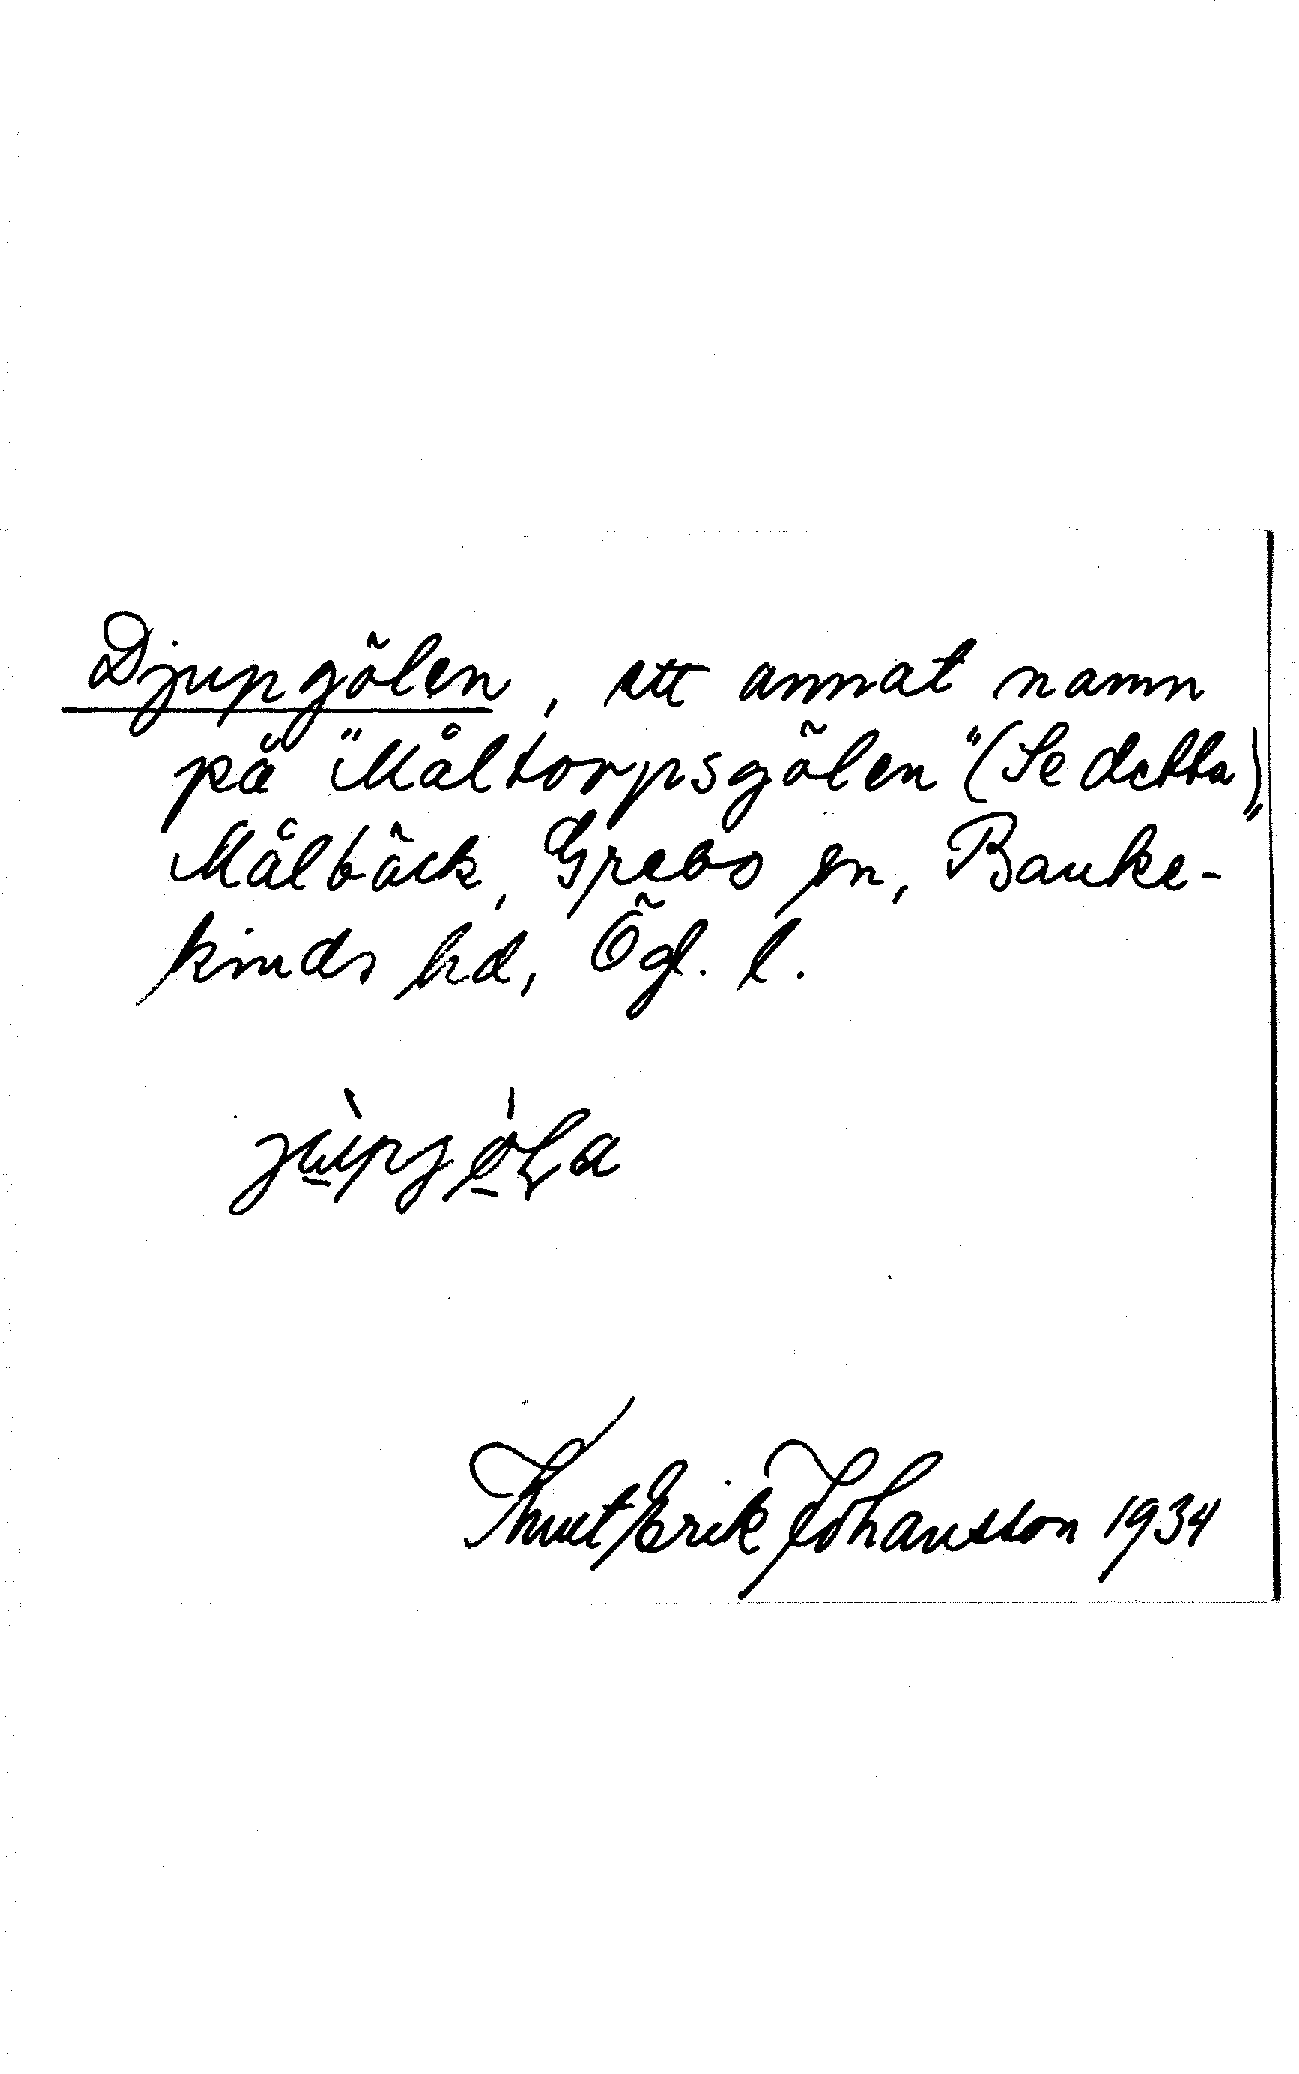 Djupgölen, ett annat namn
på "Måltorpsgölen" (Se detta),
Målbäck, Grebo sn, Banke-
kinds hd, Ögl. l.
Knut Erik Johansson 1934